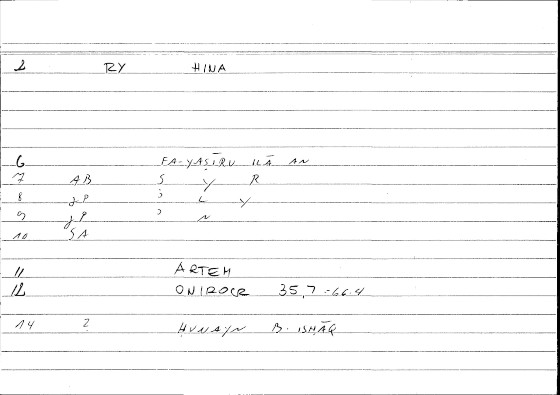 2 RY HINA
6 FA-YAṢĪRU ILĀ AN
7 AB S Y R
8 gP ʾ L Y
9 gP ʾ N
10 SA
11 ARTEM
12 ONIROCR 35,7 -66.4
14 2 ḤUNAYN B. ISḤĀQ